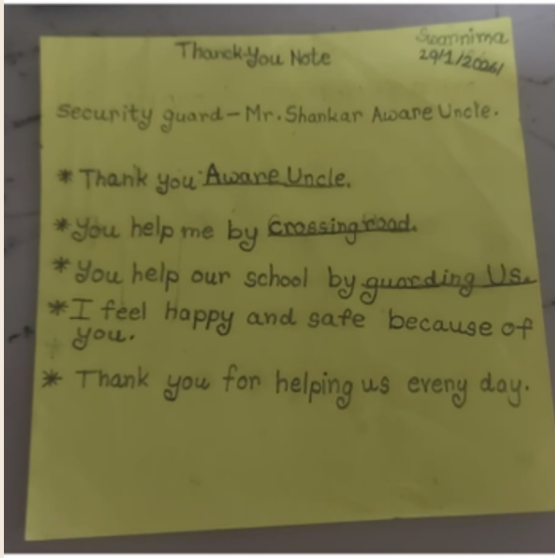 Thanck-You Note
Swarnima
29/1/2026/
Security guard - Mr. Shankar Aware Uncle.
* Thank you Aware Uncle.
* You help me by crossing road.
* You help our school by guarding Us.
* I feel happy and safe because of
you.
* Thank you for helping us eveny day.